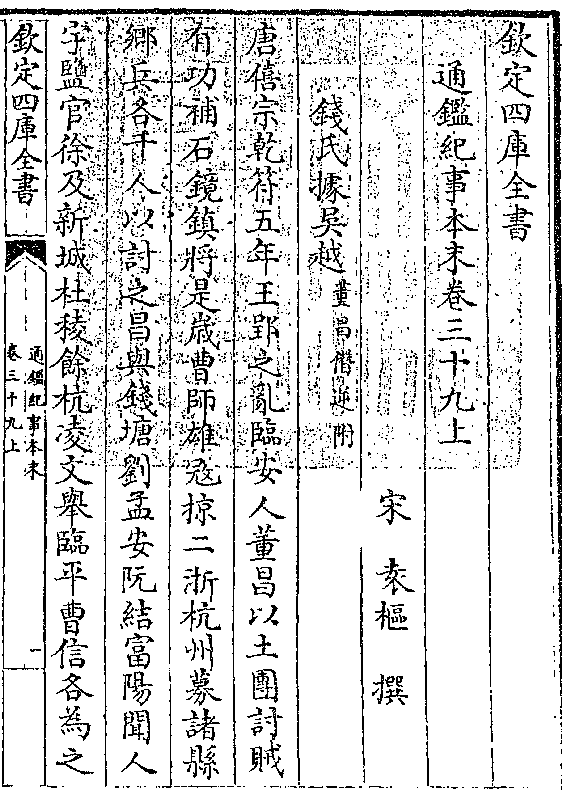 欽定四庫全書
通鑑紀事本末卷三十九上
宋 袁樞 撰
錢氏據吳越 董昌僭逆附
唐僖宗乾符五年王郢之亂臨安人董昌以土團討賊
有功補石鏡鎮將是歲曹師雄寇掠二浙杭州募諸縣
鄉兵各千人以討之昌與錢塘劉孟安阮結富陽聞人
宇鹽官徐及新城杜稜餘杭凌文舉臨平曹信各為之
欽定四庫全書
通鑑紀事本末
卷三十九上
一